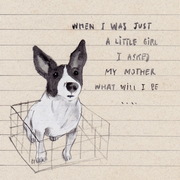 WHEN I WAS JUST
A LITTLE GIRL
I ASKED
MY MOTHER
WHAT WILL I BE
....